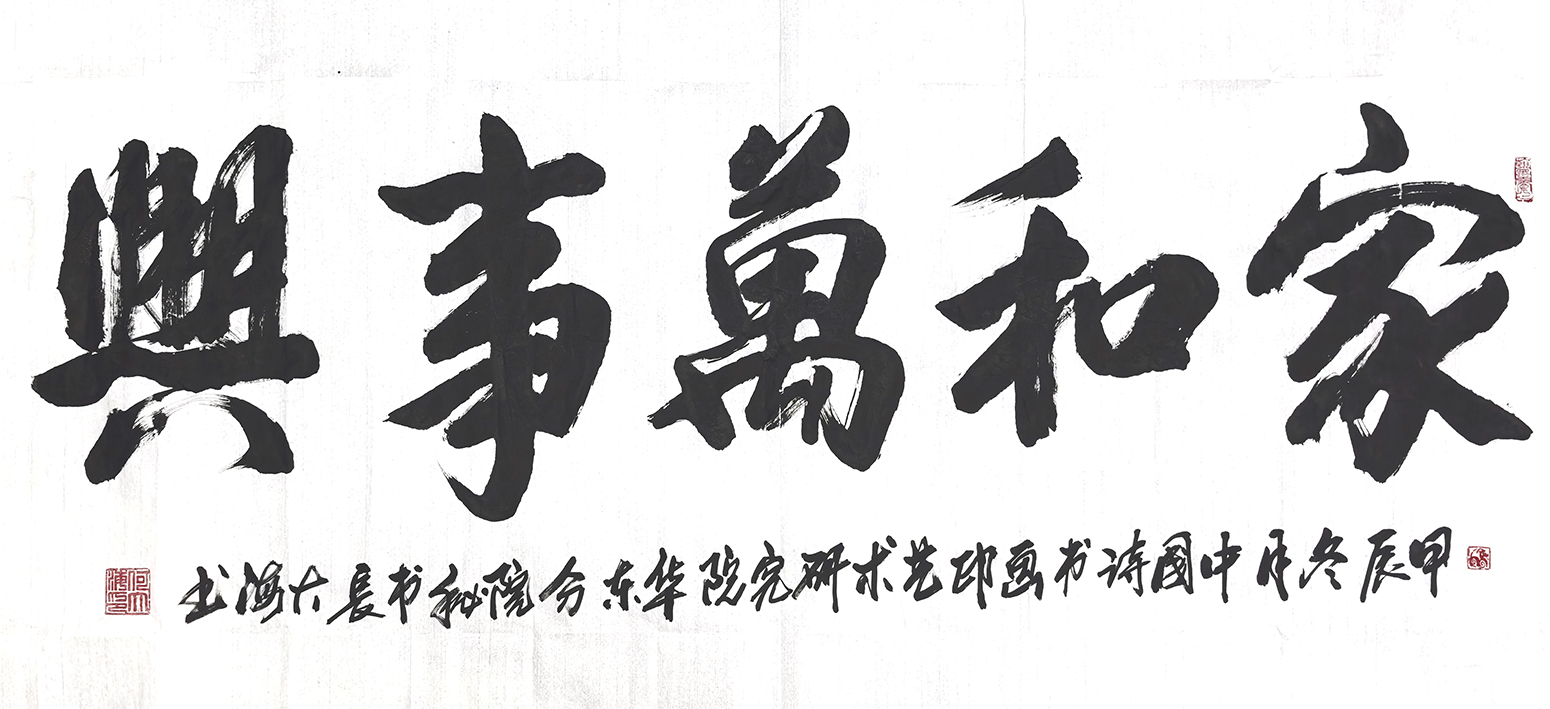 家和萬事興
甲辰冬月中國诗书画印艺术研究院华东分院秘书长大海书